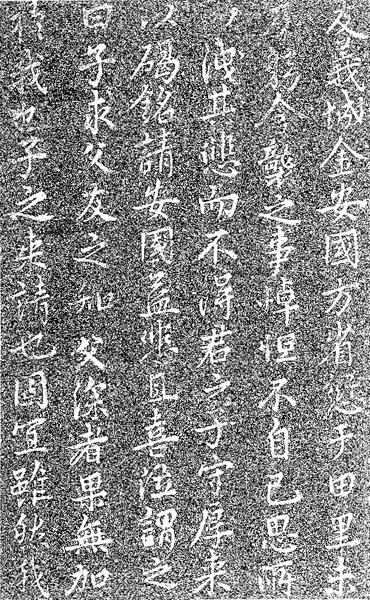 友義城金安國方省愆于田里未
躬之事悼怛不自已思所
洩其悲而不得君之子守厚来
以碣銘請安國益悲且喜泣謂之
曰子求父友之知父深者果無加
我也子之来請也固宜雖然我